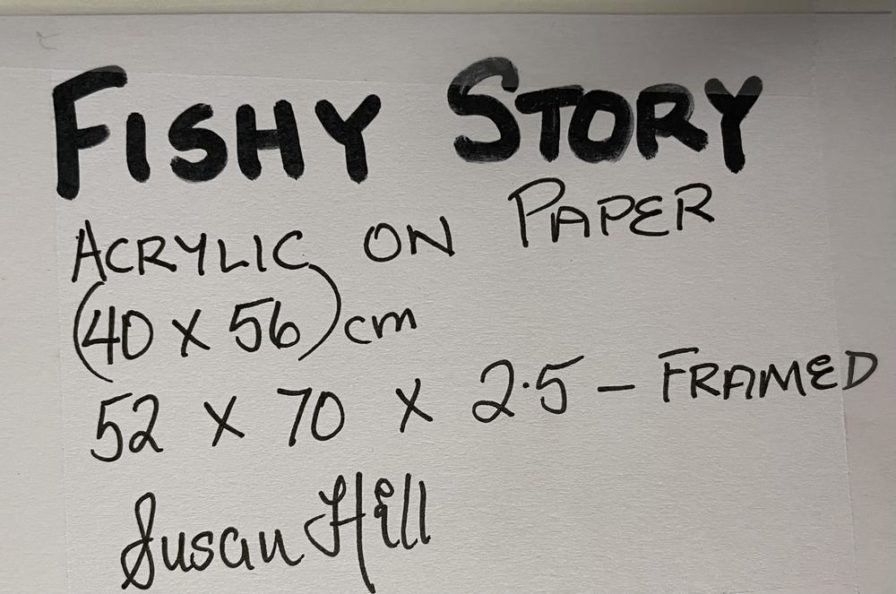 FISHY STORY
ACRYLIC ON PAPER
(40 x 56) cm
52 x 70 x 2.5 - FRAMED
Susan Hill